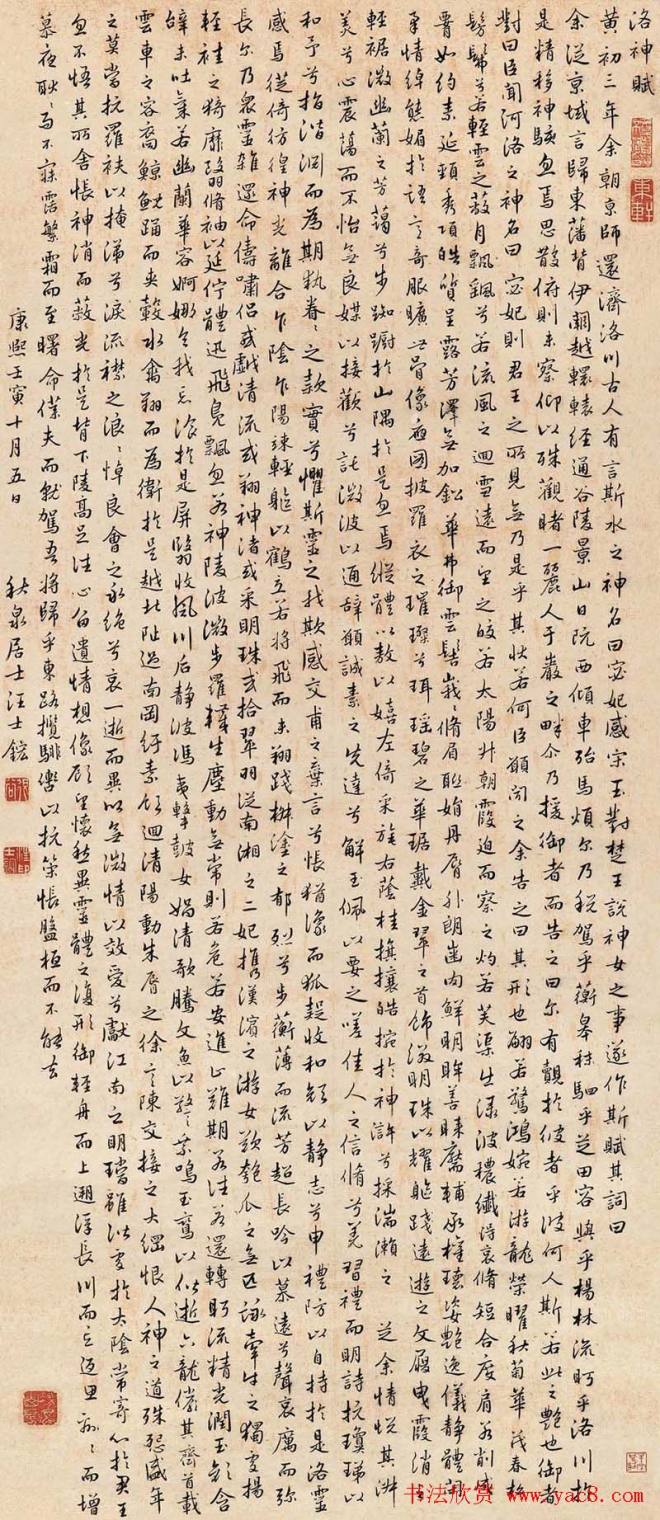 洛神賦
黄初三年余朝京師還濟洛川古人有言斯水之神名曰宓妃感宋玉對楚王說神女之事遂作斯賦其詞曰
余從京域言歸東藩背伊闕越轘轅經通谷陵景山日既西傾車殆馬煩尔乃稅駕乎蘅皋秣駟乎芝田容與乎楊林流眄乎洛川於
是精移神駭忽焉思散俯則未察仰以殊觀睹一麗人于巖之畔尒乃援御者而告之曰尔有覿於彼者乎彼何人斯若此之艷也御者
對曰臣聞河洛之神名曰宓妃則君王之所見無乃是乎其狀若何臣願聞之余告之曰其形也翩若驚鴻婉若游龍榮曜秋菊華茂春松
髣髴兮若輕雲之蔽月飄飖兮若流風之迴雪遠而望之皎若太陽升朝霞迫而察之灼若芙渠出淥波穠纖得衷脩短合度肩若削成
腰如約素延頸秀項皓質呈露芳澤無加鉛華弗御雲髻峩〻脩眉聯娟丹脣外朗皓齒内鮮明眸善睞靨輔承權瓌姿艷逸儀靜體閑
柔情綽態媚於語言奇服曠世骨像應圖披羅衣之璀璨兮珥瑶碧之華琚戴金翠之首飾綴明珠以耀軀踐遠遊之文履曳霧綃之
輕裾微幽蘭之芳藹兮步踟躕於山隅於是忽焉縱體以敖以嬉左倚采旄右蔭桂旗攘皓捥於神滸兮採湍瀨之 芝余情悦其淑
美兮心震蕩而不怡無良媒以接歡兮託微波以通辭願誠素之先達兮解玉佩以要之嗟佳人之信脩兮羌習禮而明詩抗瓊珶以
和予兮指潛淵而為期執眷〻之款實兮懼斯靈之我欺感交甫之棄言兮悵猶豫而狐疑收和顔以靜志兮申禮防以自持於是洛靈
感焉徙倚彷徨神光離合乍陰乍陽竦輕軀以鶴立若將飛而未翔踐椒塗之郁烈兮步蘅薄而流芳超長吟以慕遠兮聲哀厲而弥
長尔乃衆靈雜遝命儔嘯侣或戲清流或翔神渚或采明珠或拾翠羽從南湘之二妃攜漢濱之游女歎匏瓜之無匹詠牽牛之獨處揚
輕袿之猗靡翳脩袖以延佇體迅飛鳧飄忽若神陵波微步羅襪生塵動無常則若危若安進止難期若往若還轉眄流精光潤玉顔含
辭未吐氣若幽蘭華容婀娜令我忘飡於是屏翳收風川后靜波馮夷擊鼓女媧清歌騰文魚以警乘鳴玉鸞以偕逝六龍儼其齊首載
雲車之容裔鯨魮踊而夾轂水禽翔而為衛於是越北沚過南岡紆素領迴清陽動朱脣之徐言陳交接之大綱恨人神之道殊怨盛年
之莫當抗羅袂以掩涕兮淚流襟之浪〻悼良會之永絶兮哀一逝而異鄉無微情以效愛兮獻江南之明璫雖潛處於太陰常寄心於君王
忽不悟其所舍悵神消而蔽光於是背下陵高足往心留遺情想像顧望懷愁冀靈體之復形御輕舟而上遡浮長川而忘返思綿〻而增
慕夜耿〻而不寐霑繁霜而至曙命僕夫而就駕吾將歸乎東路攬騑轡以抗策悵盤桓而不能去
康熙壬寅十月五日
秋泉居士汪士鋐
书法欣赏 www.yac8.com